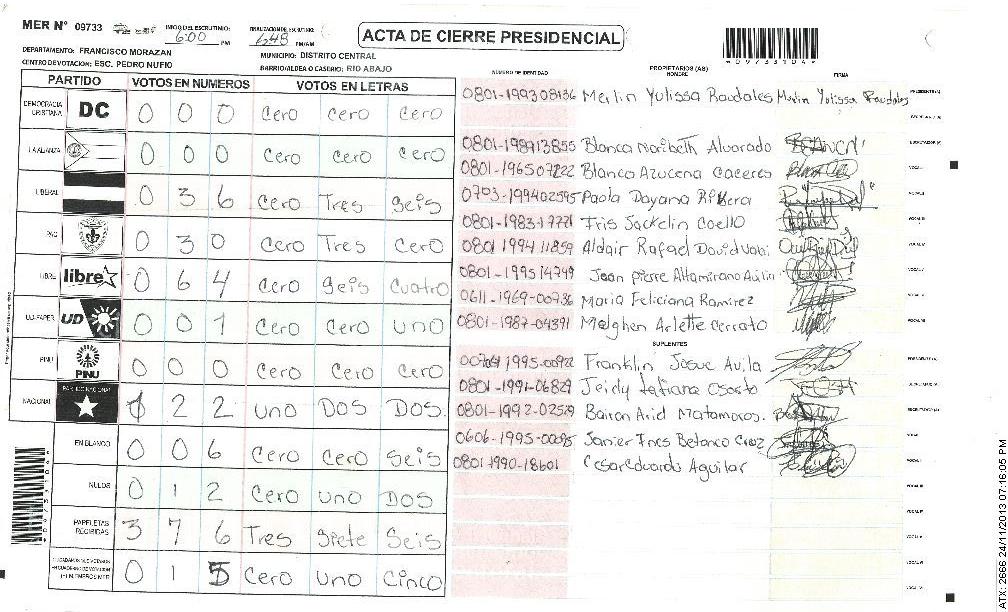 MER Nº 09733
INICIO DEL ESCRUTINIO: 6:00 PM
FINALIZACION DE ESCRUTINIO: 6:48 PM/AM
ACTA DE CIERRE PRESIDENCIAL
DEPARTAMENTO: FRANCISCO MORAZAN
MUNICIPIO: DISTRITO CENTRAL
CENTRO DE VOTACION: ESC. PEDRO NUFIO
BARRIO/ALDEA O CASERIO: RIO ABAJO
PARTIDO VOTOS EN NUMEROS VOTOS EN LETRAS
DEMOCRACIA CRISTIANA DC 0 0 0 Cero Cero Cero
LA ALIANZA 0 0 0 Cero Cero Cero
LIBERAL 0 3 6 Cero Tres Seis
PAC 0 3 0 Cero Tres Cero
LIBRE libre 0 6 4 Cero Seis Cuatro
UD-FAPER UD 0 0 1 Cero Cero uno
PINU PINU 0 0 0 Cero Cero Cero
NACIONAL PARTIDO NACIONAL 1 2 2 uno DOS DOS.
EN BLANCO 0 0 6 Cero Cero Seis
NULOS 0 1 2 Cero uno DOS
PAPELETAS RECIBIDAS 3 7 6 Tres Siete Seis
0 1 5 Cero uno Cinco
NUMERO DE IDENTIDAD PROPIETARIOS (AS) NOMBRE FIRMA
*09733104*
0801-199308136 Merlin Yulissa Raudales Merlin Yulissa Raudales PRESIDENTE (A)
SECRETARIO (A)
0801-198913855 Blanca Maribeth Alvarado ESCRUTADOR (A)
0801-196507222 Blanca Azucena Caceres VOCAL I
0703-199402595 Paola Dayana Rivera VOCAL II
0801-1983-17721 Iris Jackelin Coello VOCAL III
0801 1994 11859 Aldair Rafael David VOCAL IV
0801-1995 14749 Jean pierre Altamirano Avila VOCAL V
0611-1969-00736 Maria Feliciana Ramirez VOCAL VI
0801-1987-04391 Melghen Arlette Cerrato VOCAL VII
SUPLENTES
1995-00922 Franklin Josue Avila PRESIDENTE (A)
0801-1991-06829 Jeidy tatiana Osorto SECRETARIO (A)
0801-1992-02529 Bairon Arid Matamoros. ESCRUTADOR (A)
0606-1995-00095 Janier Ines Betanco Cruz VOCAL I
0801 1990-18601 Cesar Eduardo Aguilar VOCAL II
VOCAL III
VOCAL IV
VOCAL V
VOCAL VI
VOCAL VII
ATX: 2666 24/11/2013 07:16:05 PM